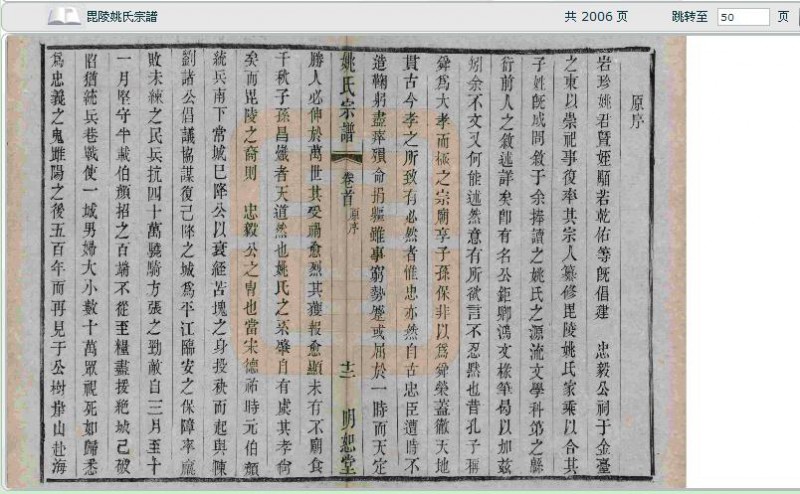 毘陵姚氏宗譜
共 2006 页
跳转至 50 页
原序
岩珍姚君曁姪顯若乾佑等旣倡建 忠毅公祠于金臺
之東以崇祀事復率其宗人纂修毘陵姚氏家乘以合其
子姓旣成問敘于余捧讀之姚氏之源流文學科第之緜
衍前人之敘述詳矣卽有名公鉅卿鴻文椽筆曷以加茲
矧余不文又何能述然意有所欲言不忍默也昔孔子稱
舜爲大孝而極之宗廟享子孫保非以爲舜榮蓋徹天地
貫古今孝之所致有必然者惟忠亦然自古忠臣遭時不
造鞠躬盡瘁殞命捐軀雖事窮勢蹙或屈於一時而天定
姚氏宗譜
卷首
原序
十二
明恕堂
勝人必伸於萬世其受禍愈烈其獲報愈顯未有不廟食
千秋子孫昌熾者天道然也姚氏之系肇自有虞其孝尙
矣而毘陵之裔則 忠毅公之冑也當宋德祐時元伯顏
統兵南下常城巳降公以衰絰苦塊之身投袂而起與陳
劉諸公倡議協謀復己降之城爲平江臨安之保障率龐
敗未練之民兵抗四十萬驍騎方張之勁敵自三月至十
一月堅守半載伯顏招之百端不從至糧盡援絕城己破
陷猶統兵巷戰使一城男婦大小數十萬眾視死如歸悉
爲忠義之鬼雖陽之後五百年而再見于公樹
山赴海